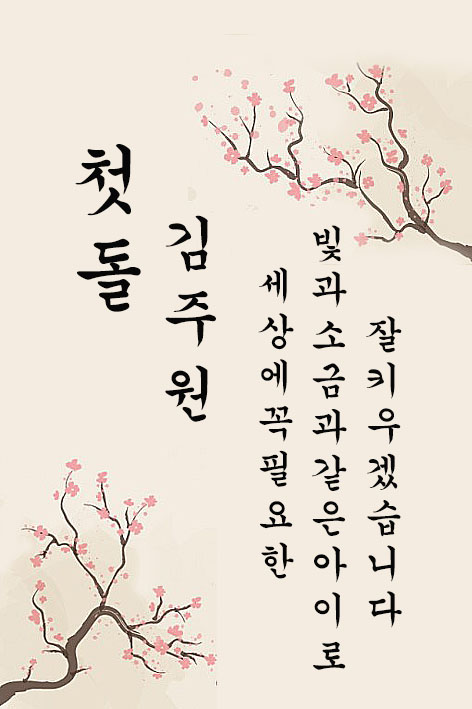 첫돌
김주원
세상에꼭필요한
빛과소금과같은아이로
잘키우겠습니다